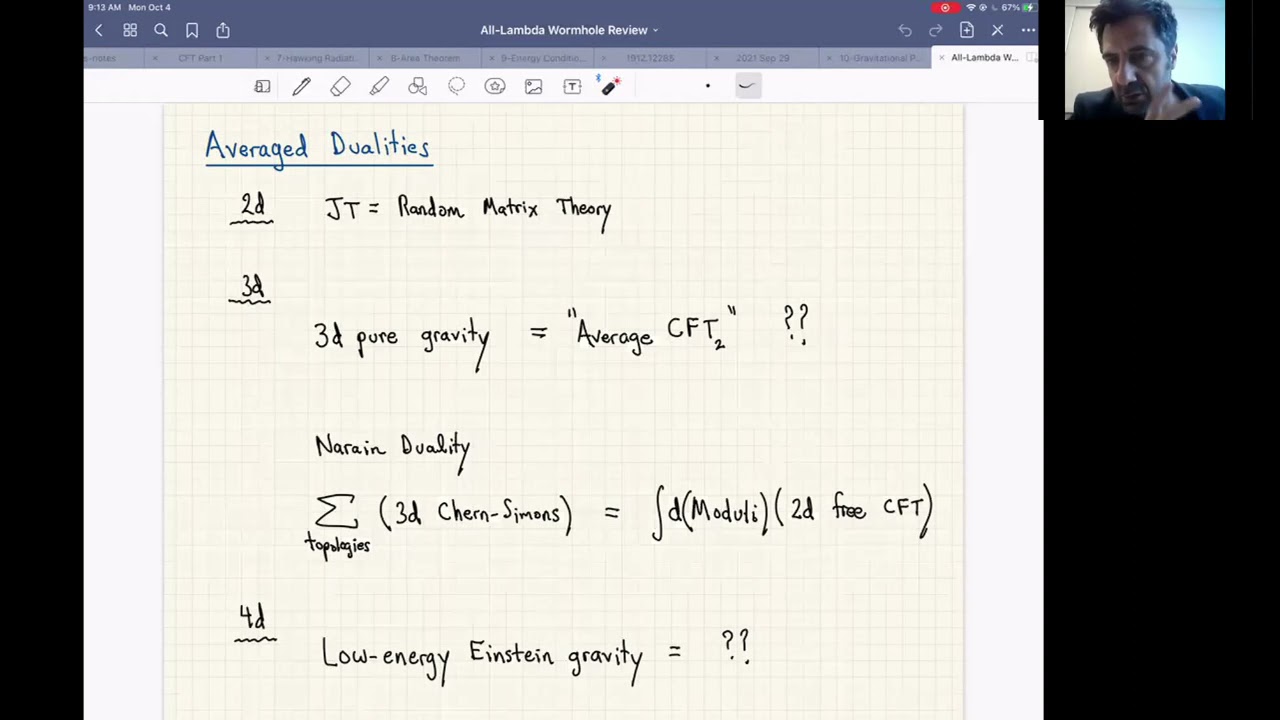 9:13 AM Mon Oct 4
67%
All-Lambda Wormhole Review
s-notes
CFT Part 1
7-Hawking Radiati
8-Area Theorem
9-Energy Conditio...
1912.12285
2021 Sep 29
10-Gravitational P...
All-Lambda W...
Averaged Dualities
2d JT = Random Matrix Theory
3d
3d pure gravity = "Average CFT₂" ??
Narain Duality
∑ (3d Chern-Simons) = ∫d(Moduli)(2d free CFT)
topologies
4d
Low-energy Einstein gravity = ??